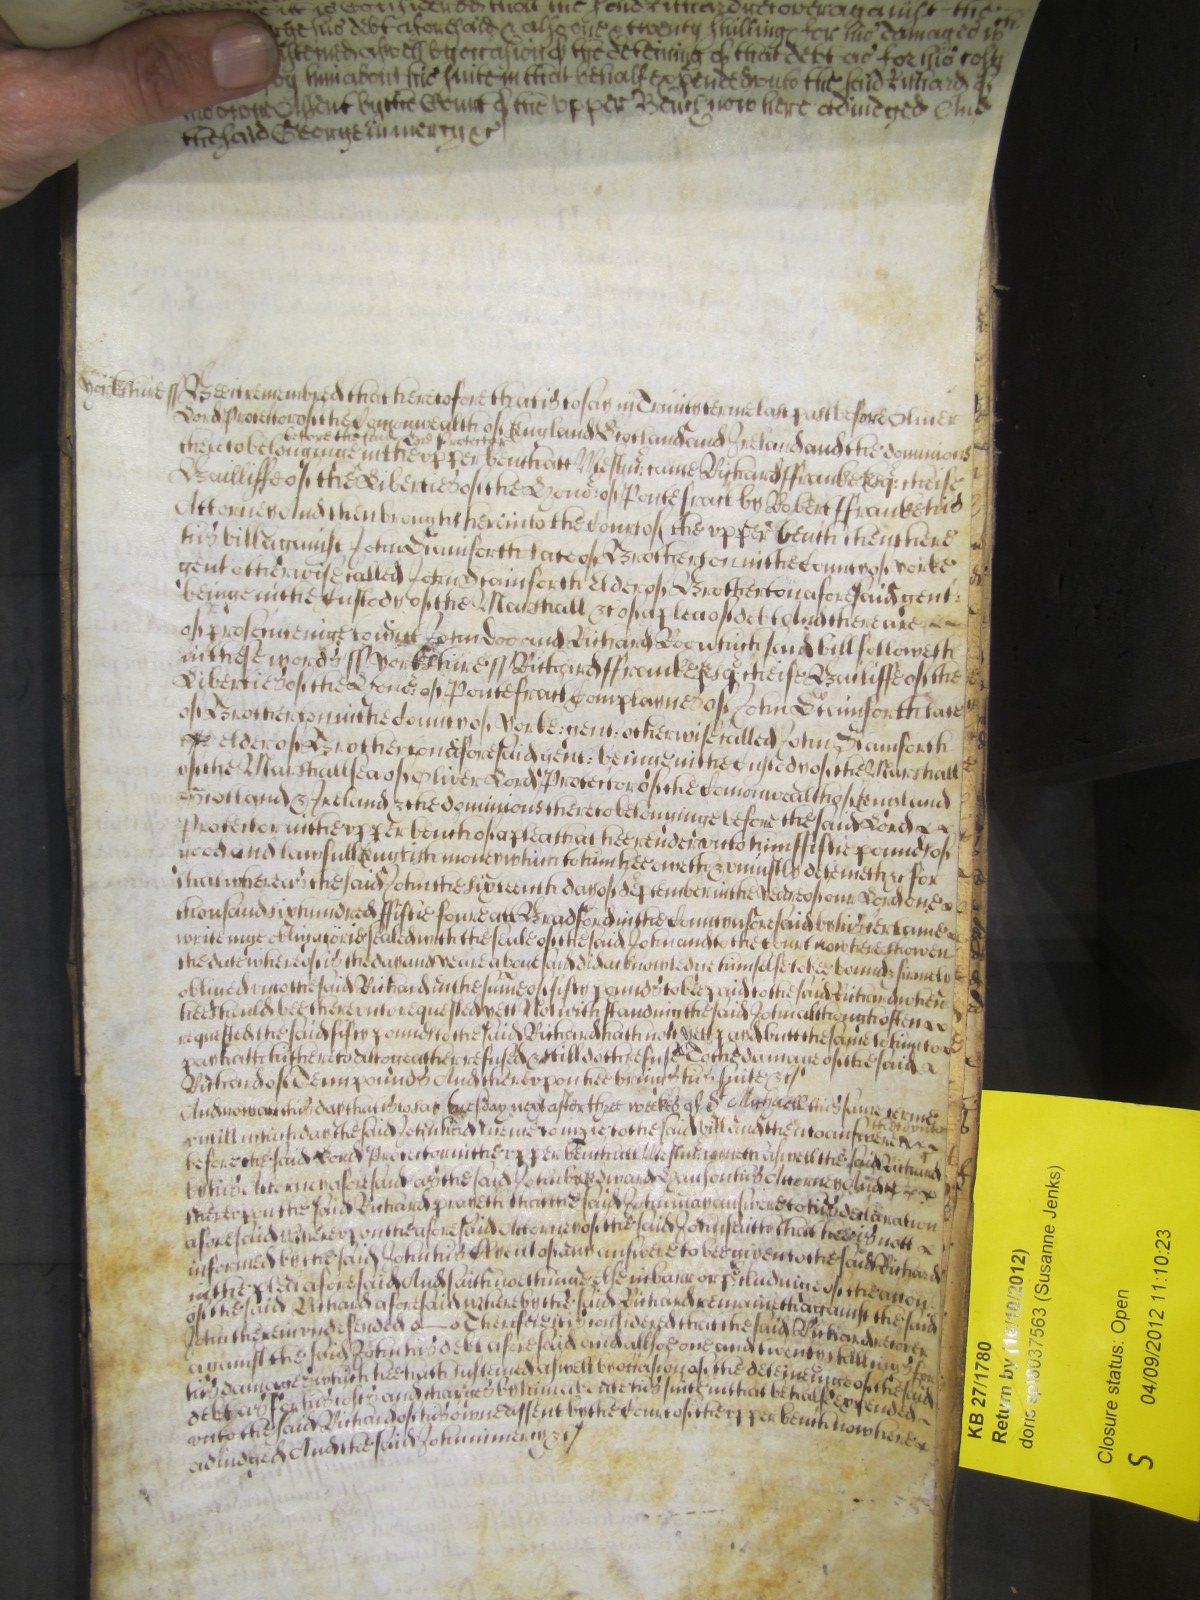 it is Considered that the said Richard recover against the
his debt aforesaid & alsoe one & twenty shillings for his damages wch
susteined aswell by occasion of the deteining of that debt as for his costs
by him about his suite in that behalfe expended unto the said Richard of
his owne assent by the Court of the upper Bench now here adiudged And
the said George in mercy &c
Yorkshire ss Bee it remembred that heretofore that is to say in Trinity terme last past before Oliver
Lord Protector of the Comonwealth of England Scotland and Ireland and the dominions
before the said Lord Protector
thereto belonginge in the upper bench att Westmr: came Richard Ffranke Esqr: cheife
Bailiffe of the Liberties of the Honor: of Pontefract by Robert Ffranke his
Attorney And then brought here into the Court of the upper bench then there
his bill against John Stainforth late of Brotherton in the County of Yorke
gent otherwise called John Stainforth Elder of Brotherton aforesaid gent:
beinge in the Custody of the Marshall &c of a plea of debt And there are
of prosecuteinge to witt John Doo and Richard Roo which said bill followeth
in these words ss Yorkshire ss Richard Ffranke Esqr: cheife Bailiffe of the
Liberties of the Honor: of Pontefract Complaynes of John Stainforth late
of Brotherton in the County of Yorke: gent: otherwise called John Stainforth
elder of Brotherton aforesaid gent: beinge in the Custody of the Marshall
of the Marshallsea of Oliver Lord Protector of the Comonwealth of England
Scotland & Ireland & the dominions thereto belonginge before the said Lord
Protector in the upper bench of a plea that hee render unto him ffiftie pounds of
good and lawfull English money which to him hee oweth & uniustly deteineth for
that whereas the said John the sixteenth day of September in the yeare of our Lord one
thousand six hundred ffiftie foure att Bradford in the County aforesaid by his certaine
writeinge obligatorie sealed with the seale of the said John and to the Court now here showen
the date whereof is the day and yeare abovesaid did acknowledge himselfe to bee bound & firmely
obliged unto the said Richard in the sume of fifty pounds to bee paid to the said Richard when
hee should bee thereunto requested yett Notwithstanding the said John although often
requested the said fifty pounds to the said Richard hath not yett payd butt the same to him to
pay hath hitherto altogeather refused & still doth refuse To the damage of the said
Richard of Tenn pounds And thereupon hee brings his suite &c
And now att this day that is to say Tuesday next after three weekes of St Michaell this same terme
untill which day the said John had licence to imparle to the said bill and then to answere
before the said Lord Protector in the upper bench att Westmr: cometh aswell the said Richard
by his Attorney aforesaid as the said John by Edward his Attorney And
thereupon the said Richard prayeth that the said John may answere to his declaration
aforesaid Whereupon the aforesaid Attorney of the said John saith that hee is nott
informed by the said John his Client of any answere to bee given to the said Richard
in the plea aforesaid And saith nothinge else in barr or pcludinge of the action
of the said Richard aforesaid whereby the said Richard remaineth against the said
John therein undefended Therefore itt is considered that the said Richard recover
against the said John his debt aforesaid and allsoe one and twenty shillings for
his damages which hee hath susteined aswell by occasion of the deteineinge of the said
debt as for his costs and charges by him about his suite in that behalfe expended
unto the said Richard of his owne assent by the Court of the upper bench now here
adiudged And the said John in mercy &c
KB 27/1780
Return by (18/10/2012)
(Susanne Jenks)
Closure status: Open
S 04/09/2012 11:10:23